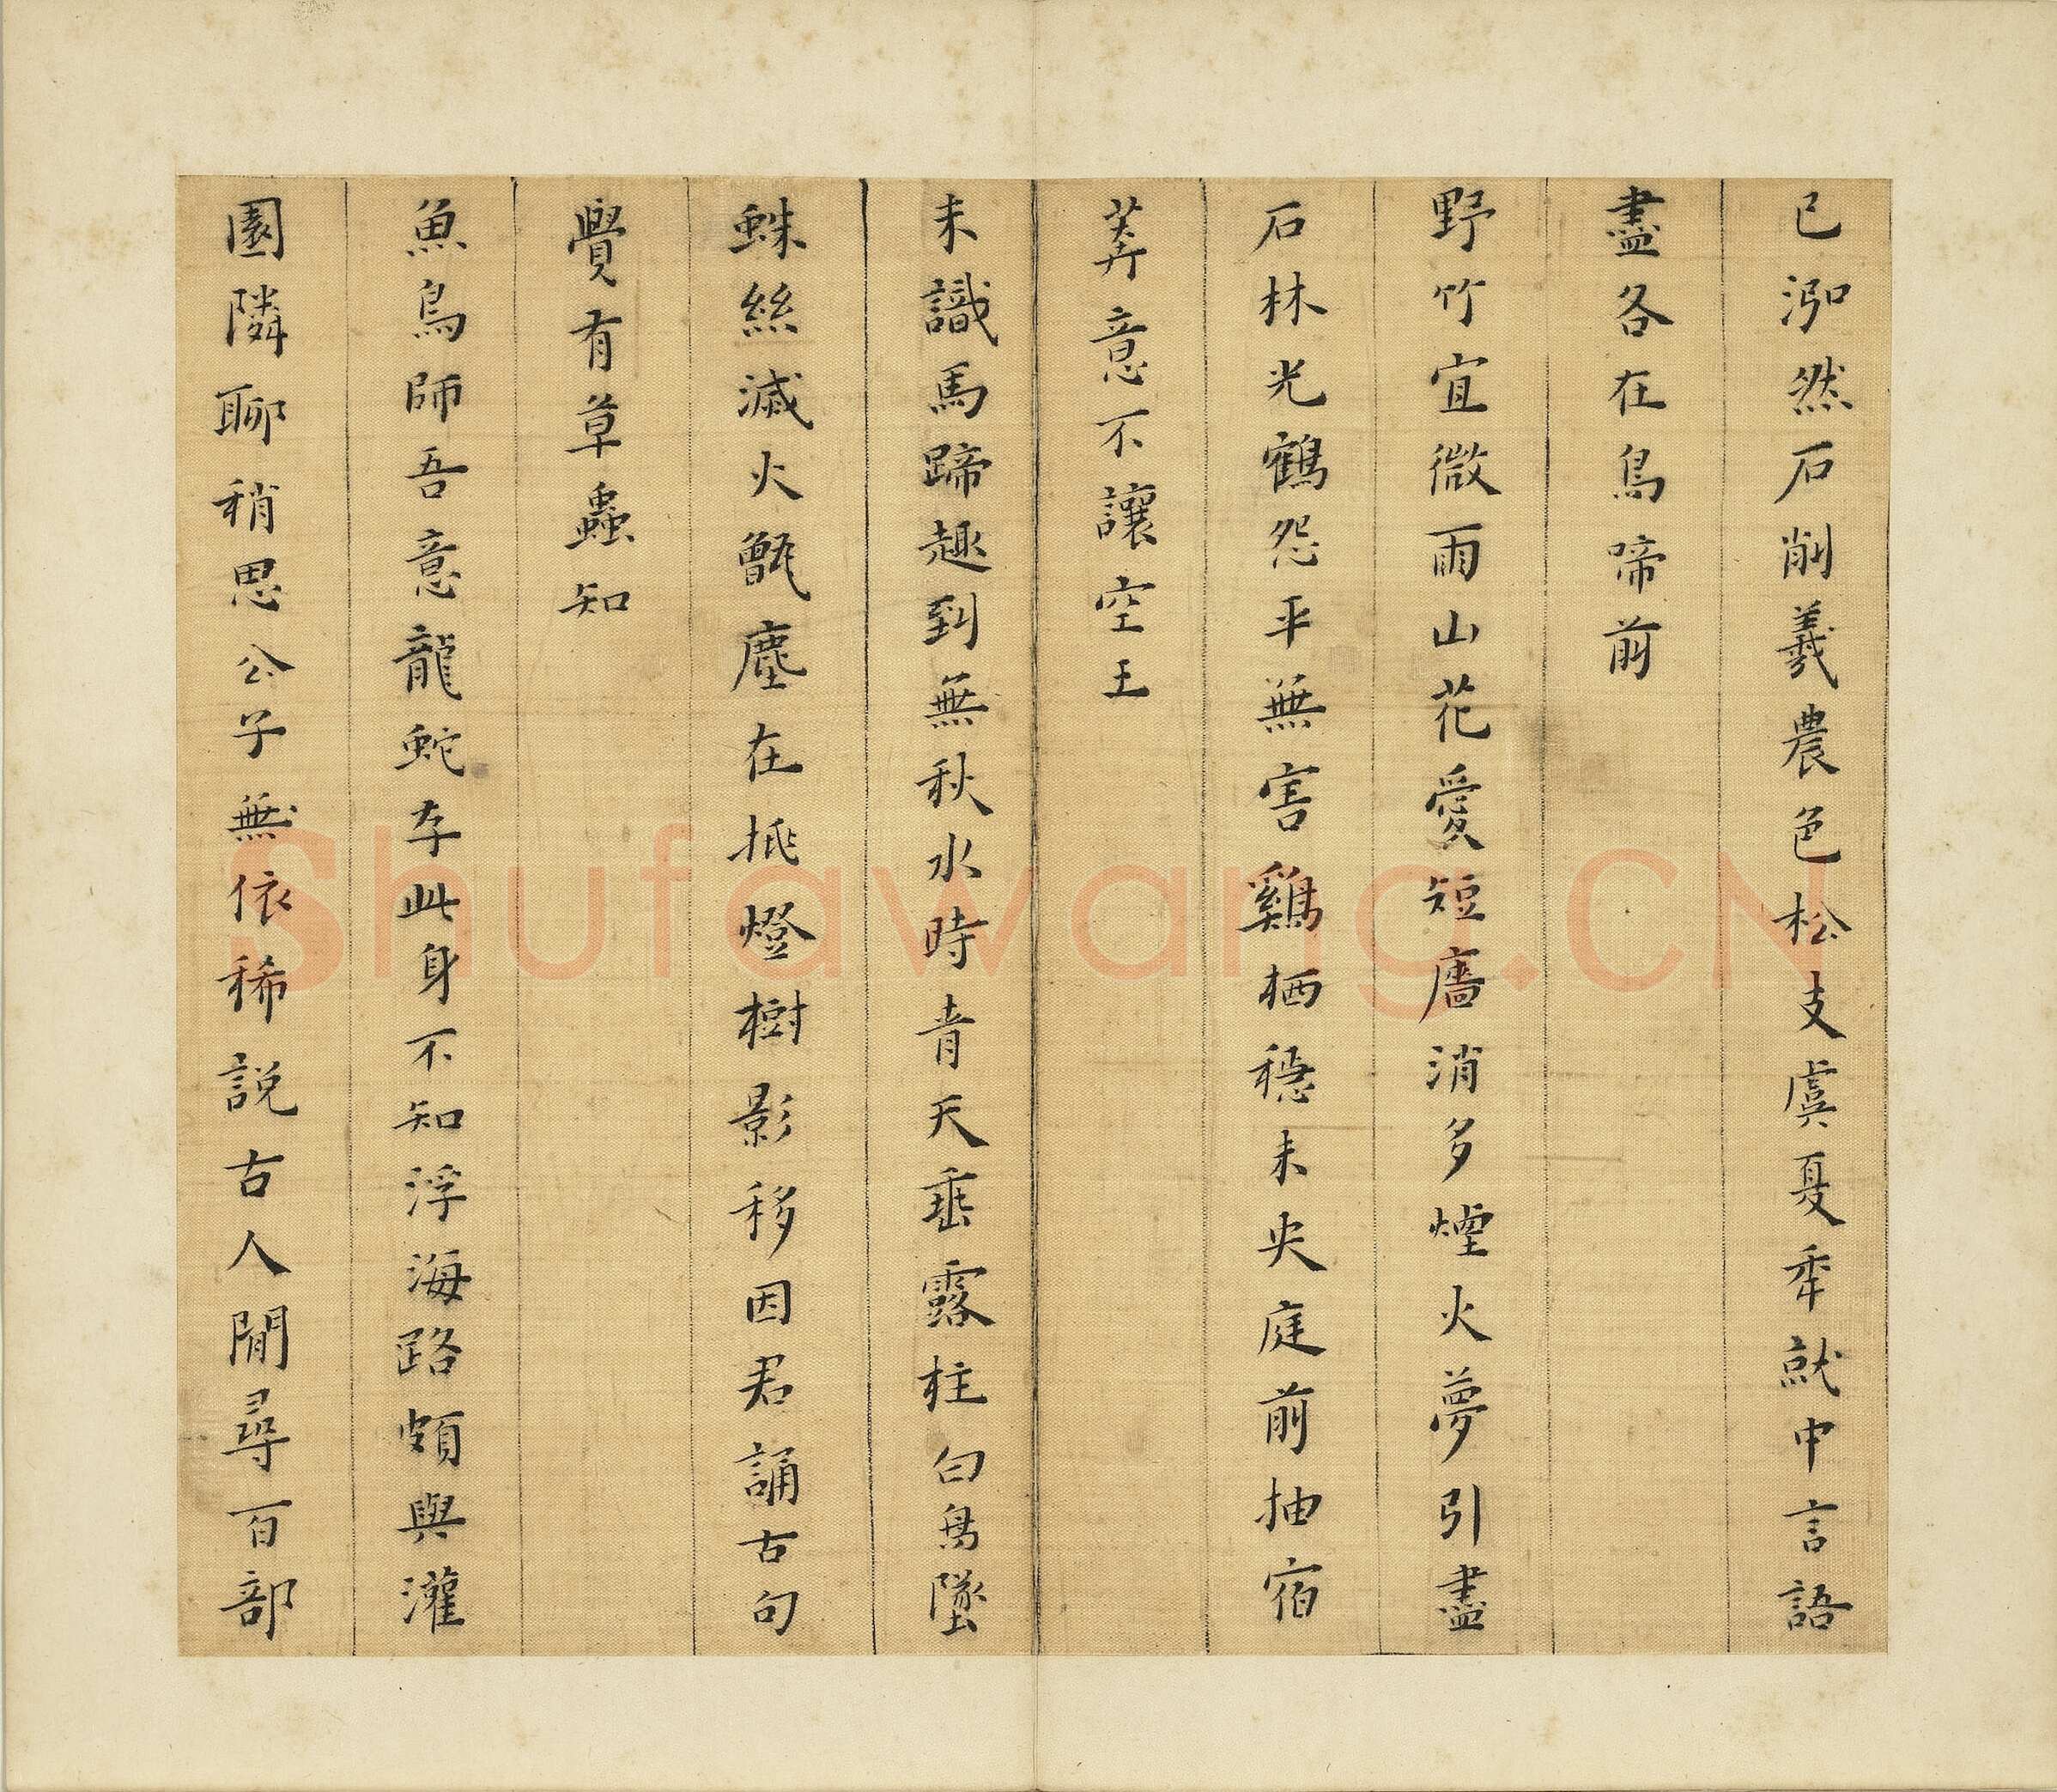 已泓然石削羲農色松支虞夏秊就中言語
盡各在鳥啼前
野竹宜微雨山花愛短廧消多煙火夢引盡
石林光鶴怨平無害鷄栖穩未央庭前抽宿
莽意不讓空王
未識馬蹄趣到無秋水時青天垂露柱白鳥墜
蛛絲滅火甑塵在挑燈樹影移因君誦古句
覺有草蟲知
魚鳥師吾意龍蛇存此身不知浮海路頗與灌
園隣聊稍思公子無依稀說古人閒尋百部
Shufawang.CN